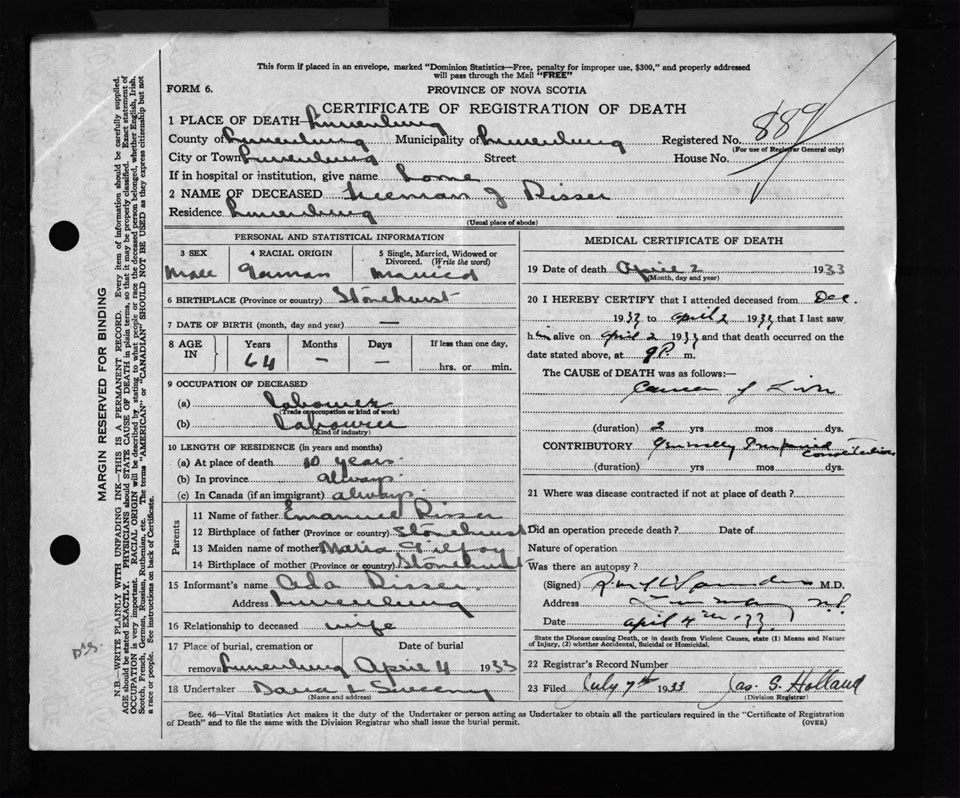 This form if placed in an envelope, marked "Dominion Statistics—Free, penalty for improper use, $300," and properly addressed
will pass through the Mail "FREE"
FORM 6. PROVINCE OF NOVA SCOTIA
CERTIFICATE OF REGISTRATION OF DEATH
1 PLACE OF DEATH—Lunenburg
County of Lunenburg Municipality of Lunenburg Registered No. 889
(For use of Registrar General only)
City or Town Lunenburg Street House No.
If in hospital or institution, give name Home
2 NAME OF DECEASED Freeman J Risser
Residence Lunenburg
(Usual place of abode)
PERSONAL AND STATISTICAL INFORMATION
3 SEX 4 RACIAL ORIGIN 5 Single, Married, Widowed or Divorced. (Write the word)
Male German Married
6 BIRTHPLACE (Province or country) Stonehurst
7 DATE OF BIRTH (month, day and year) —
8 AGE IN Years Months Days If less than one day,
64 – – hrs. or min.
9 OCCUPATION OF DECEASED
(a) Labourer
(Trade or occupation or kind of work)
(b) Labourer
(Kind of industry)
10 LENGTH OF RESIDENCE (in years and months)
(a) At place of death 10 years
(b) In province always
(c) In Canada (if an immigrant) always
Parents
11 Name of father Emanuel Risser
12 Birthplace of father (Province or country) Stonehurst
13 Maiden name of mother Maria
14 Birthplace of mother (Province or country) Stonehurst
15 Informant's name Ada Risser
Address Lunenburg
16 Relationship to deceased wife
17 Place of burial, cremation or removal Date of burial
Lunenburg April 4 1933
18 Undertaker Sweeny
(Name and address)
MEDICAL CERTIFICATE OF DEATH
19 Date of death April 2 1933
(Month, day and year)
20 I HEREBY CERTIFY that I attended deceased from Dec.
1932 to April 2 1933 that I last saw
him alive on April 2 1933 and that death occurred on the
date stated above, at 9 P. m.
The CAUSE of DEATH was as follows:—
Cancer of Liver
(duration) 2 yrs mos dys.
CONTRIBUTORY Generally Constitution
(duration) yrs mos dys.
21 Where was disease contracted if not at place of death?
Did an operation precede death? Date of
Nature of operation
Was there an autopsy?
(Signed) M.D.
Address N.S.
Date April 4th. 33
State the Disease causing Death, or in death from Violent Causes, state (1) Means and Nature
of Injury, (2) whether Accidental, Suicidal or Homicidal.
22 Registrar's Record Number
23 Filed July 7th 1933 Jas. S. Holland
(Division Registrar)
Sec. 46—Vital Statistics Act makes it the duty of the Undertaker or person acting as Undertaker to obtain all the particulars required in the "Certificate of Registration
of Death" and to file the same with the Division Registrar who shall issue the burial permit. (OVER)
MARGIN RESERVED FOR BINDING
N.B.—WRITE PLAINLY WITH UNFADING INK—THIS IS A PERMANENT RECORD. Every item of information should be carefully supplied.
AGE should be stated EXACTLY. PHYSICIANS should STATE CAUSE OF DEATH in plain terms, so that it may be properly classified. Exact statement of
OCCUPATION is very important. RACIAL ORIGIN will be described by stating to what people or race the deceased person belonged, whether English, Irish,
Scotch, French, German, Russian, Ruthenian, etc. The terms "AMERICAN" or "CANADIAN" SHOULD NOT BE USED as they express citizenship but not
a race or people. See instructions on back of Certificate.